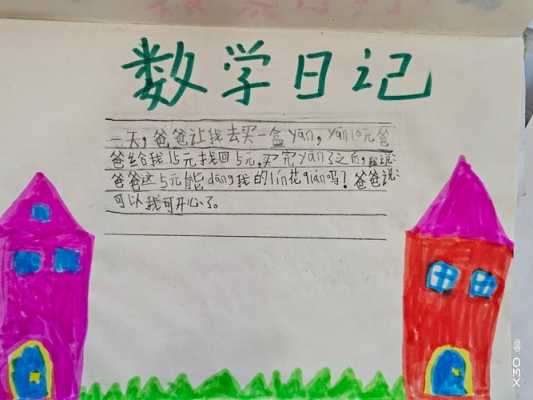 数学日记
一天，爸爸让我去买一盒yān，yān10元爸
爸给我15元找回5元，买完yān了之后，我说：
爸爸这5元能dāng我的lín花qián吗？爸爸说：
可以我可开心了。